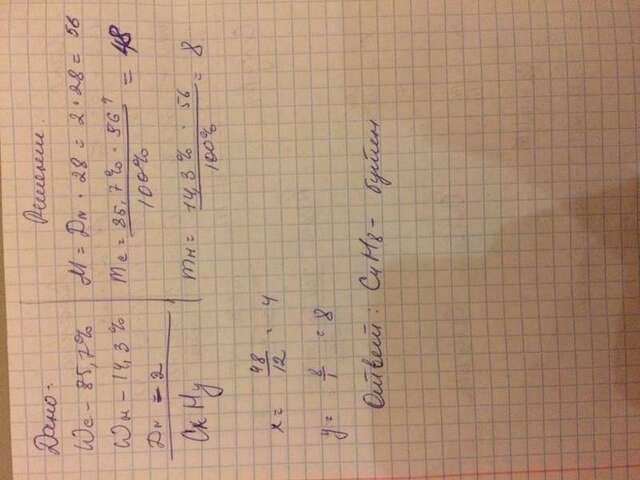 Дано:
Wc - 85,7%
Wн - 14,3%
DN = 2
CxHy
Решение.
M = DN · 28 = 2 · 28 = 56
mc = 85,7% · 56 / 100% = 48
mн = 14,3% · 56 / 100% = 8
x = 48/12 = 4
y = 8/1 = 8
Ответ: C4H8 - бутен